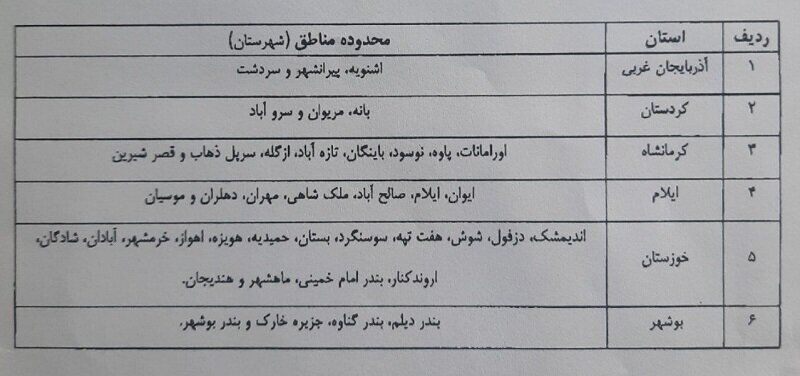 ردیف استان محدوده مناطق (شهرستان)
۱ آذربایجان غربی اشنویه، پیرانشهر و سردشت
۲ کردستان بانه، مریوان و سرو آباد
۳ کرمانشاه اورامانات، پاوه، نوسود، باینگان، تازه آباد، ازگله، سرپل ذهاب و قصر شیرین
۴ ایلام ایوان، ایلام، صالح آباد، ملک شاهی، مهران، دهلران و موسیان
۵ خوزستان اندیمشک، دزفول، شوش، هفت تپه، سوسنگرد، بستان، حمیدیه، هویزه، اهواز، خرمشهر، آبادان، شادگان،
اروندکنار، بندر امام خمینی، ماهشهر و هندیجان.
۶ بوشهر بندر دیلم، بندر گناوه، جزیره خارک و بندر بوشهر.